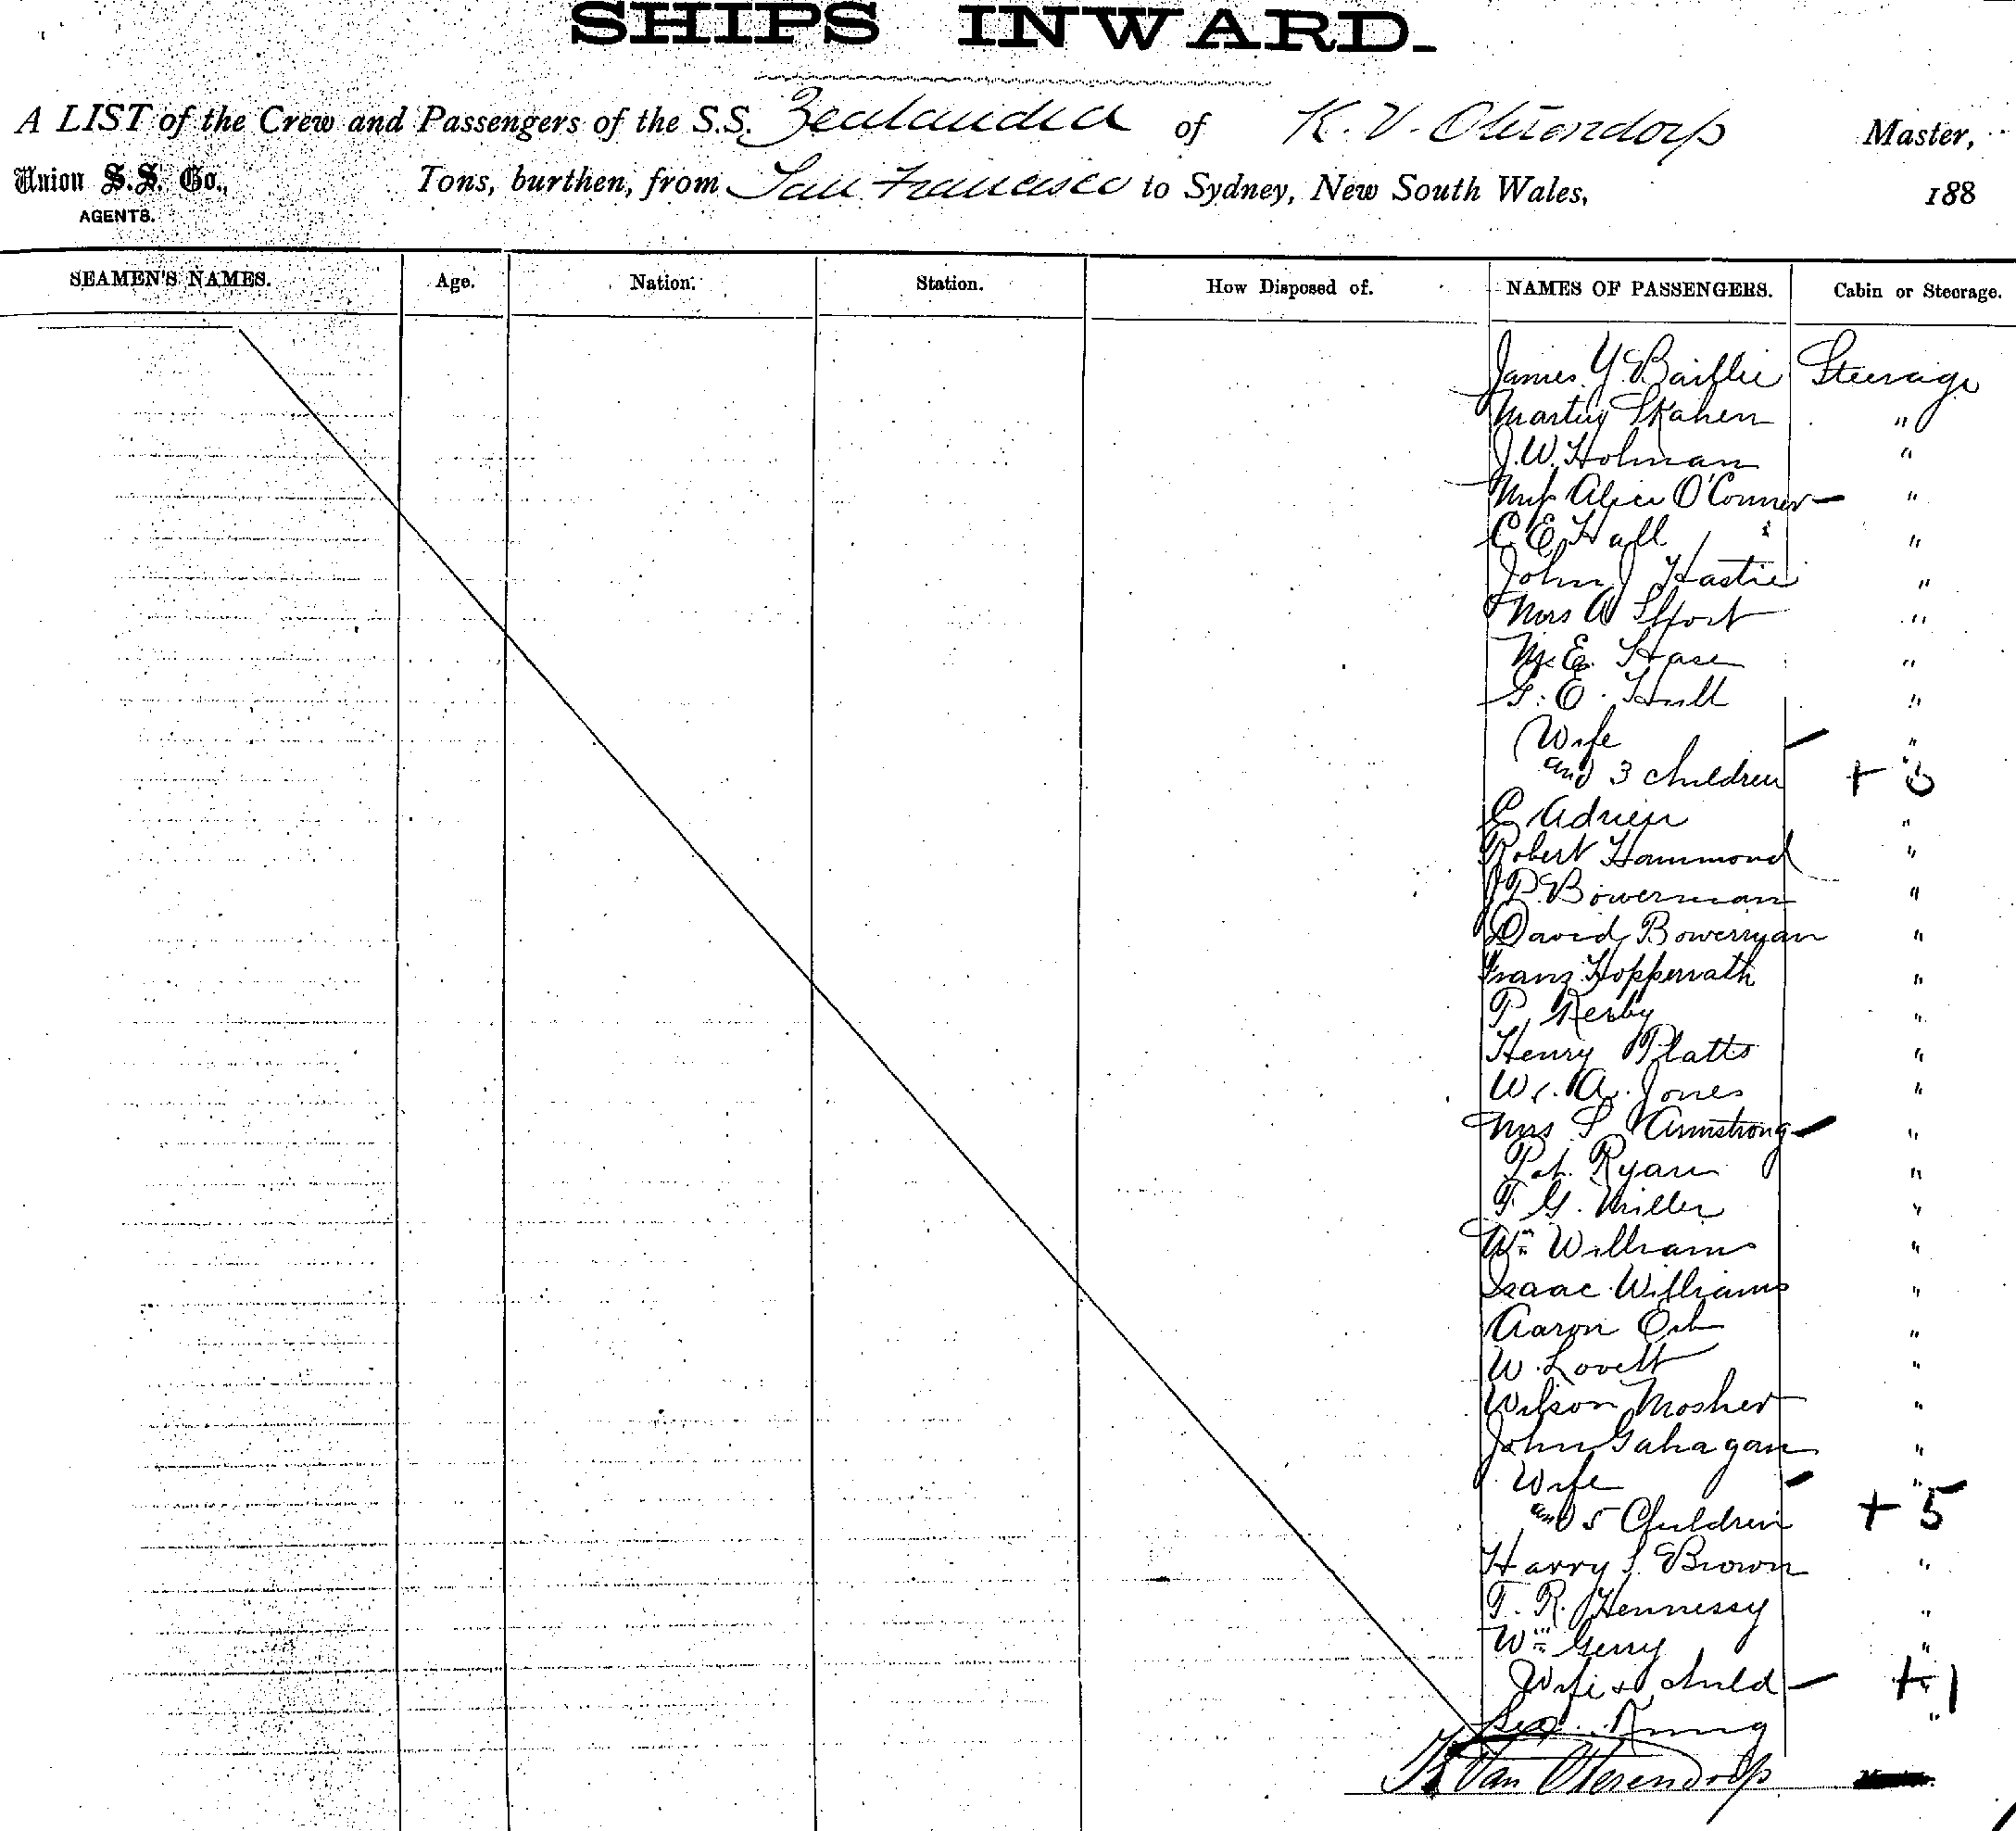 SHIPS INWARD.
A LIST of the Crew and Passengers of the S.S. Zealandia of K. V. Oterendorp Master,
Union S.S. Co., Tons, burthen, from San Francisco to Sydney, New South Wales, 188
AGENTS.
SEAMEN'S NAMES. Age. Nation. Station. How Disposed of. NAMES OF PASSENGERS. Cabin or Steerage.
James Y. Baillie Steerage
Martin Skahen "
J. W. Holman "
Miss Alice O'Conner "
C E Hall "
John J Hastie "
Mrs A Short "
M. E. Hase "
G. E. Hull "
Wife "
and 3 children + 3
E Adrien "
Robert Hammond "
J P. Bowerman "
David Bowerman "
Franz Hopperrath "
P. Kerby "
Henry Platts "
W. A. Jones "
Mrs S Armstrong "
Pat. Ryan "
F G. Miller "
Wm Williams "
Isaac Williams "
Aaron "
W. Lovett "
Wilson Mosher "
John Gahagan "
Wife "
and 5 Children + 5
Harry S. Brown "
T. R. Hennessy "
Wm Gerry "
Wife & child + 1
"
K Van Oterendorp